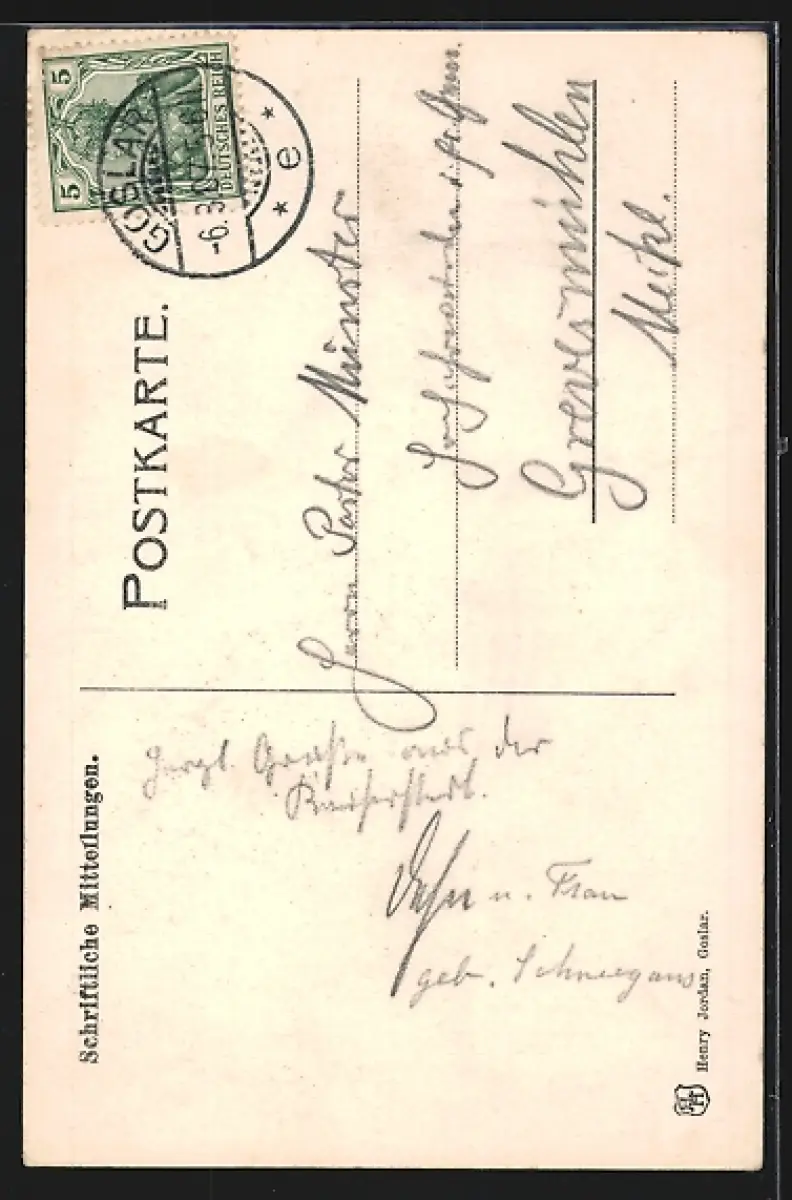 5
5
DEUTSCHES REICH
GOSLAR
-6.3.07.5-6N.
* e *
POSTKARTE.
Herrn Pastor Münster
Grevesmühlen
Meckl.
Schriftliche Mitteilungen.
Herzl. Grüße aus der
Kaiserstadt.
u. Frau
geb. Schneegans
Henry Jordan, Goslar.